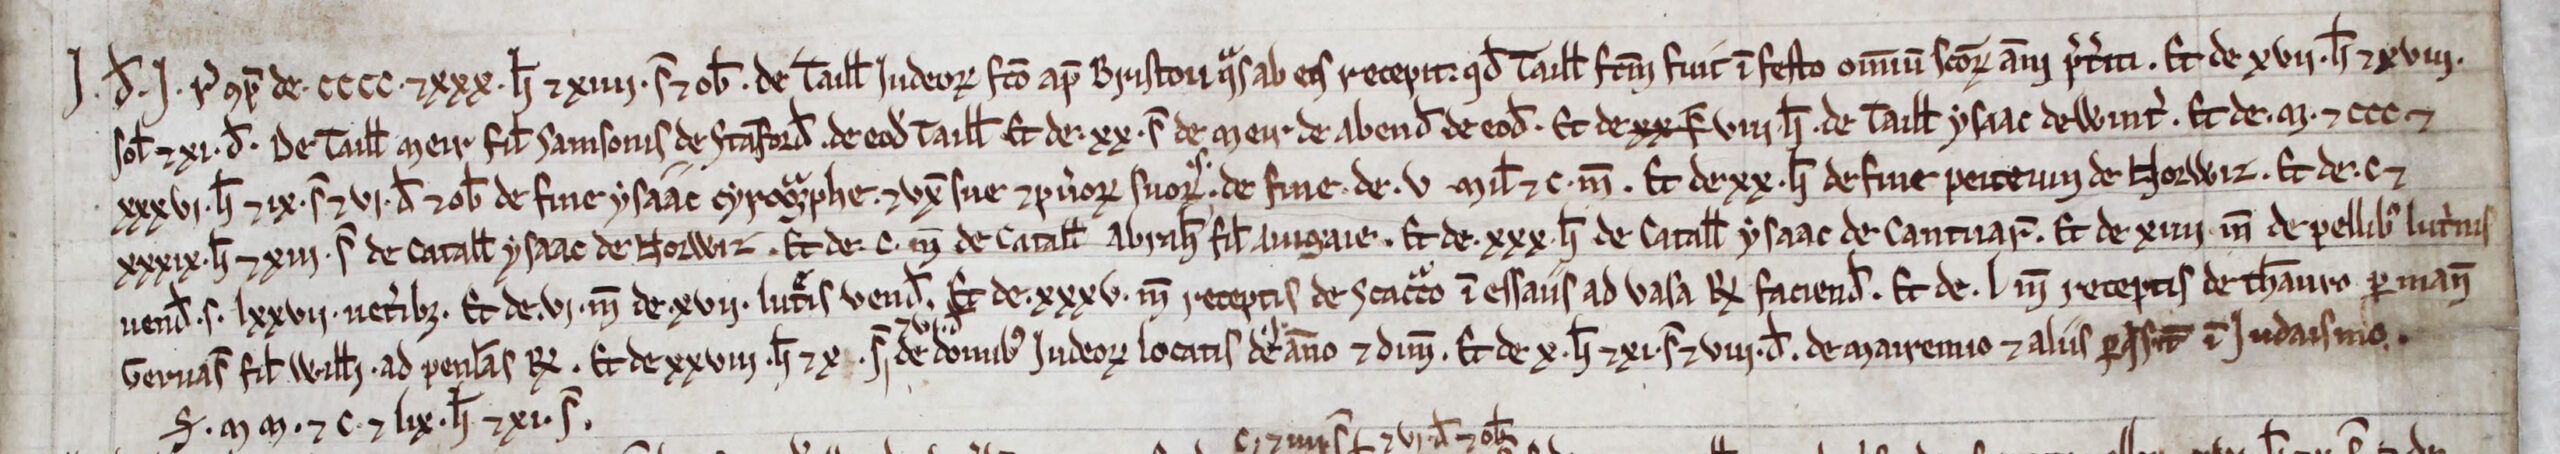 J . đ . J . r̉ 9p̄ de . cccc . ⁊ xxx . ħ ⁊ xiiij . s̄ ⁊ ob̄ . de Taill̄ Judeoꝝ fc̄o ap̄ Bristou q̄s ab eis recepit . qđ Taill̄ fc̄m fuit ī festo om̄iū Sc̄oꝝ ām p̄t̄iti . Et de xvij . ħ ⁊ xviij .
sol̄ ⁊ xi . đ . De Taill̄ meir fil̄ Samsonis de Staford̄ . de eođ Taill̄ Et de . xx . s̄ de meir de abenđ de eođ . Et de xx s̄ viij . ħ . de Taill̄ ysaac de Wint̉ . Et de . m . ⁊ ccc ⁊
xxxvi . ħ ⁊ ix . s̄ ⁊ vi . đ ⁊ ob̄ de fine ysaac cyrogᵃphe . ⁊ vx̄ sue ⁊ pủoꝝ suoꝝ . s . de fine . de . v mil̄ ⁊ c . m̄ . Et de xx . ħ de fine peiteuin de Norwiz . Et de . c ⁊
xxxix . ħ ⁊ xiii . s̄ de Catall̄ ysaac de Norwiz . Et de . c . m̄ de Catall̄ Abrah̄ fil̄ Auigaie . Et de . xxx . ħ de Catall̄ ysaac de Cantuar̄ . Et de xiiij m̄ de pellib⁹ lut̉nis
uenđ . s . lxxvij . uet̉ibꝫ . Et de . vi . m̄ de . xvij . lutᵃis venđ . Et de . xxxv . m̄ receptis de Scacᵃco ī essaiis ad vasa R̶ facienđ . Et de . l m̄ receptis de th̄auro ꝑ man̄
Geruas̄ fil̄ Will̄i . ad penl̄as R̶ . Et de xxviij . ħ ⁊ x . s̄ ⁊ vi . đ de domib⁹ Judeoꝝ locatis de . i . ān̄o ⁊ dim̄ . Et de x . ħ ⁊ xi . s̄ ⁊ viij . đ . de mairemio ⁊ aliis ī Judaismo .
S̄ . m m . ⁊ c . ⁊ lix . ħ ⁊ xi . s̄ .
⁊ vi . đ ⁊ ob̄